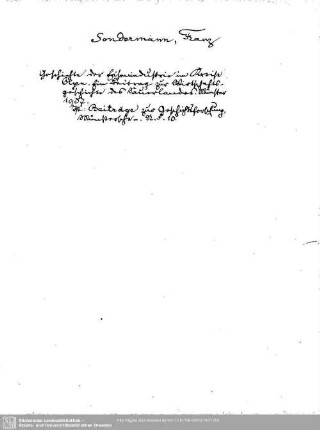 Sondermann, Franz
Geschichte der Eisenindustrie im Kreise
Olpe. Ein Beitrag zur Wirtschafts-
geschichte des Sauerlandes. Münster
1907.
In: Beiträge zur Geschichtsforschung,
Münstersche -. N. F. 10.